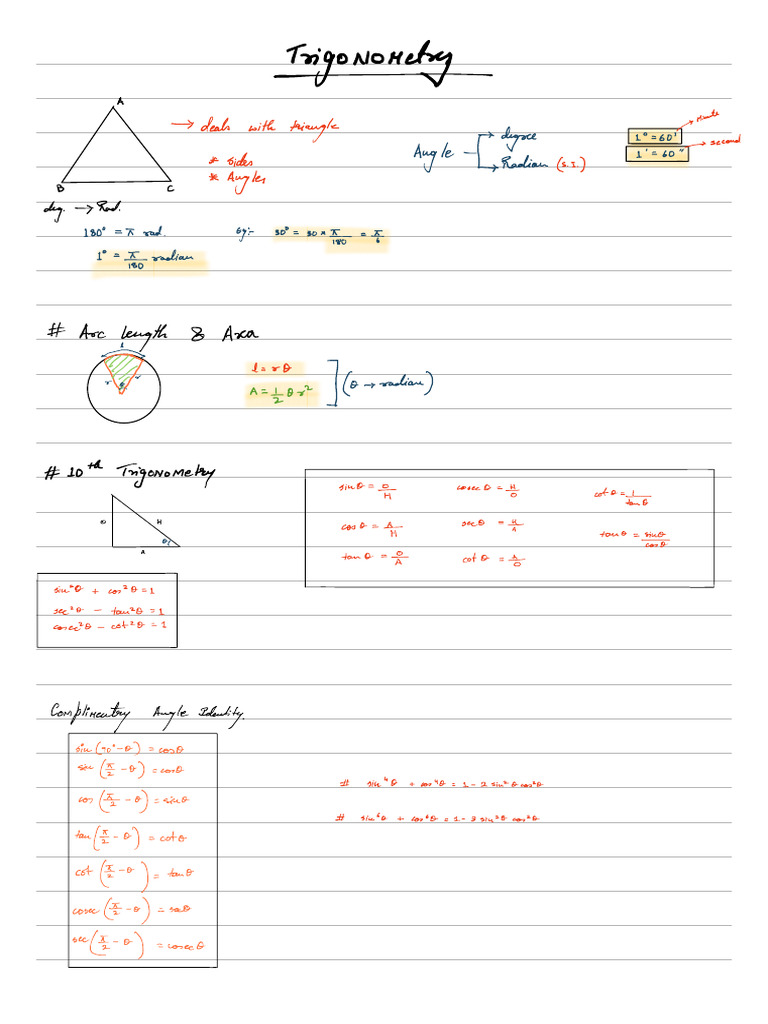 Trigonometry
A
B C
→ deals with triangle
* Sides
* Angles
Angle → degree
→ Radian (S.I.)
1° = 60' → Minute
1' = 60" → second
deg. → Rad.
180° = π rad.
1° = π/180 radian
Eg:- 30° = 30 × π/180 = π/6
# Arc length & Area
l
r θ r
l = rθ
A = 1/2 θ r²
(θ → radian)
# 10th Trigonometry
O H
A θ
sinθ = O/H cosecθ = H/O cotθ = 1/tanθ
cosθ = A/H secθ = H/A tanθ = sinθ/cosθ
tanθ = O/A cotθ = A/O
sin²θ + cos²θ = 1
sec²θ - tan²θ = 1
cosec²θ - cot²θ = 1
Complimentry Angle Identity.
sin(90° - θ) = cosθ
sin(π/2 - θ) = cosθ
cos(π/2 - θ) = sinθ
tan(π/2 - θ) = cotθ
cot(π/2 - θ) = tanθ
cosec(π/2 - θ) = secθ
sec(π/2 - θ) = cosecθ
# sin⁴θ + cos⁴θ = 1 - 2 sin²θ cos²θ
# sin⁶θ + cos⁶θ = 1 - 3 sin²θ cos²θ